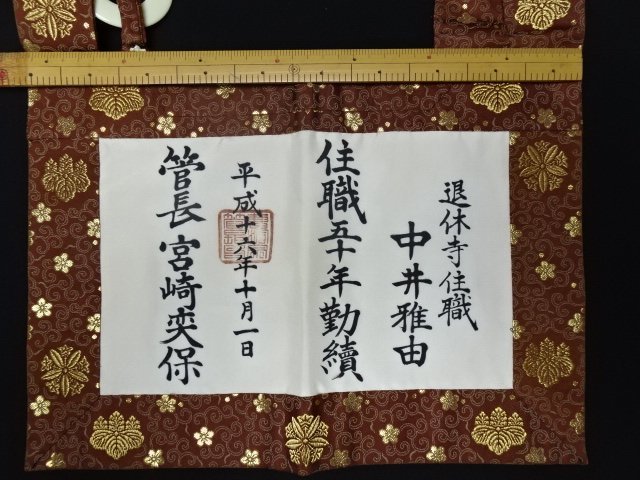 退休寺住職
中井雅由
住職五十年勤續
平成十六年十月一日
管長 宮崎奕保